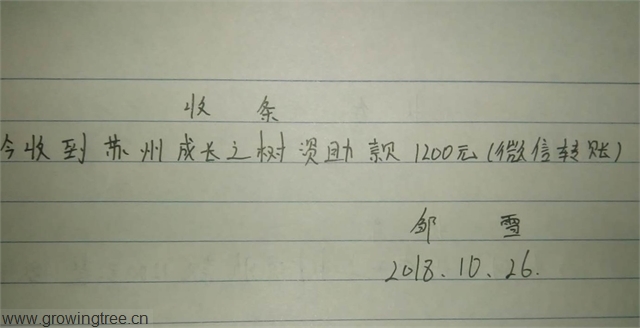 收 条
今收到苏州成长之树资助款1200元(微信转账)
邹 雪
2018.10.26.
www.growingtree.cn